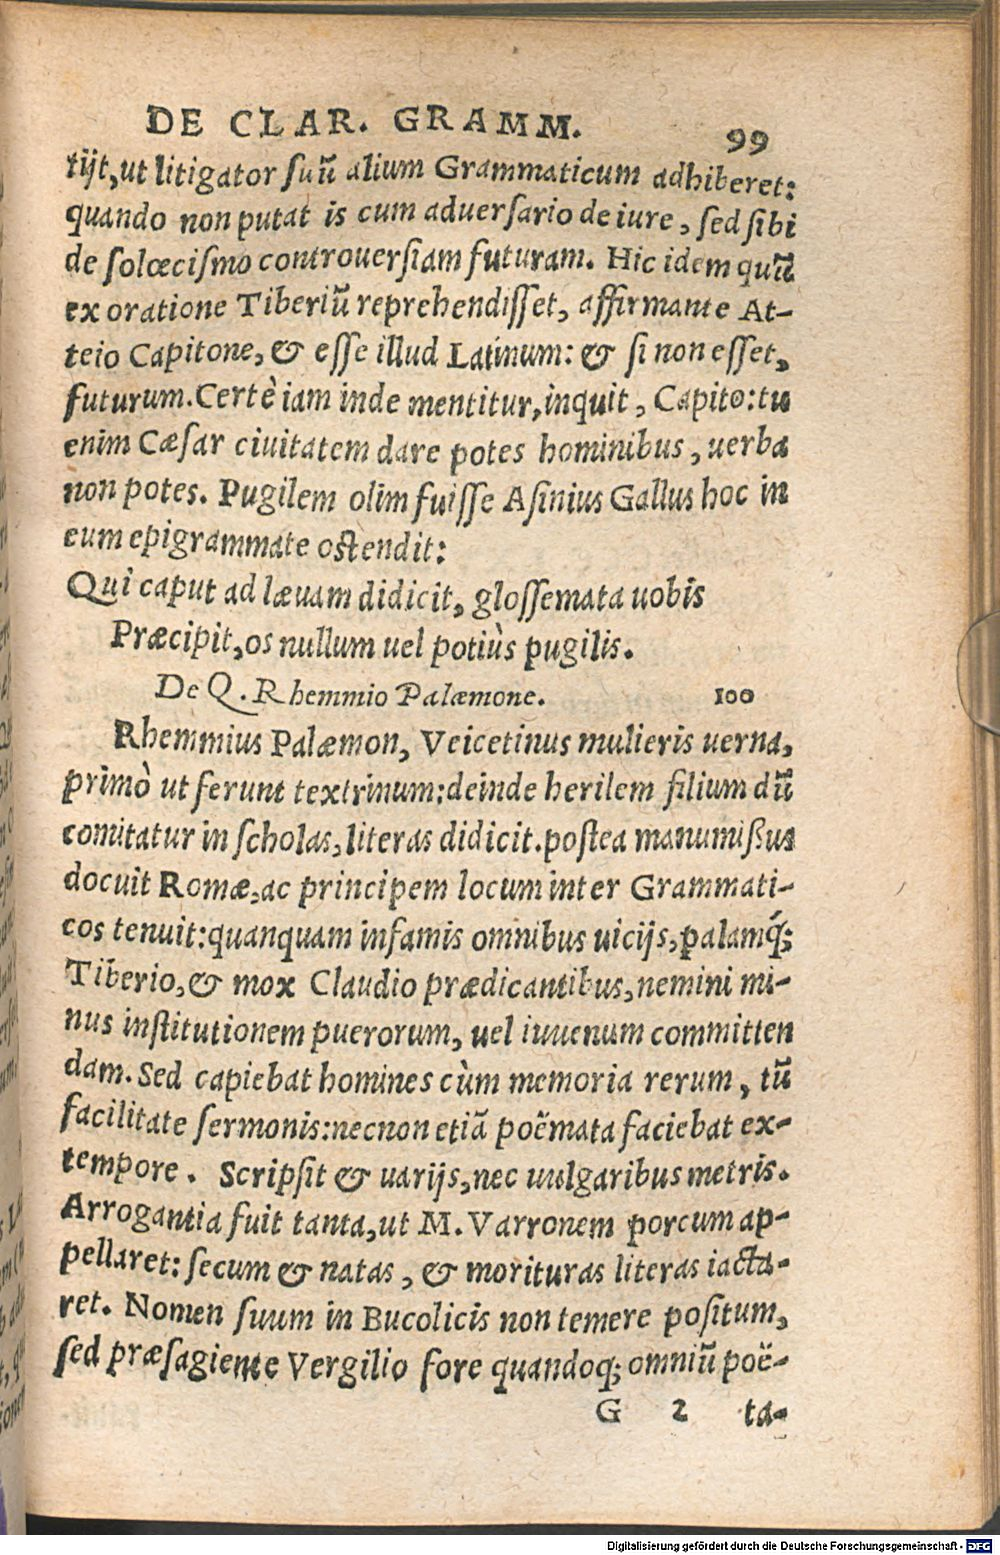 DE CLAR. GRAMM. 99
tijt, ut litigator suũ alium Grammaticum adhiberet:
quando non putat is cum aduersario de iure, sed sibi
de solœcismo controuersiam futuram. Hic idem quũ
ex oratione Tiberiũ reprehendisset, affirmante At-
teio Capitone, & esse illud Latinum: & si non esset,
futurum. Certè iam inde mentitur, inquit, Capito: tu
enim Cæsar ciuitatem dare potes hominibus, uerba
non potes. Pugilem olim fuisse Asinius Gallus hoc in
eum epigrammate ostendit:
Qui caput ad læuam didicit, glossemata uobis
Præcipit, os nullum uel potiùs pugilis.
De Q. Rhemmio Palæmone. 100
Rhemmius Palæmon, Veicetinus mulieris uerna,
primò ut ferunt textrinum: deinde herilem filium dũ
comitatur in scholas, literas didicit. postea manumißus
docuit Romæ, ac principem locum inter Grammati-
cos tenuit: quanquam infamis omnibus uicijs, palamq́;
Tiberio, & mox Claudio prædicantibus, nemini mi-
nus institutionem puerorum, uel iuuenum committen
dam. Sed capiebat homines cùm memoria rerum, tũ
facilitate sermonis: necnon etiã poëmata faciebat ex-
tempore. Scripsit & uarijs, nec uulgaribus metris.
Arrogantia fuit tanta, ut M. Varronem porcum ap-
pellaret: secum & natas, & morituras literas iacta-
ret. Nomen suum in Bucolicis non temere positum,
sed præsagiente Vergilio fore quandoq; omniũ poë-
G 2 ta-
Digitalisierung gefördert durch die Deutsche Forschungsgemeinschaft - DFG